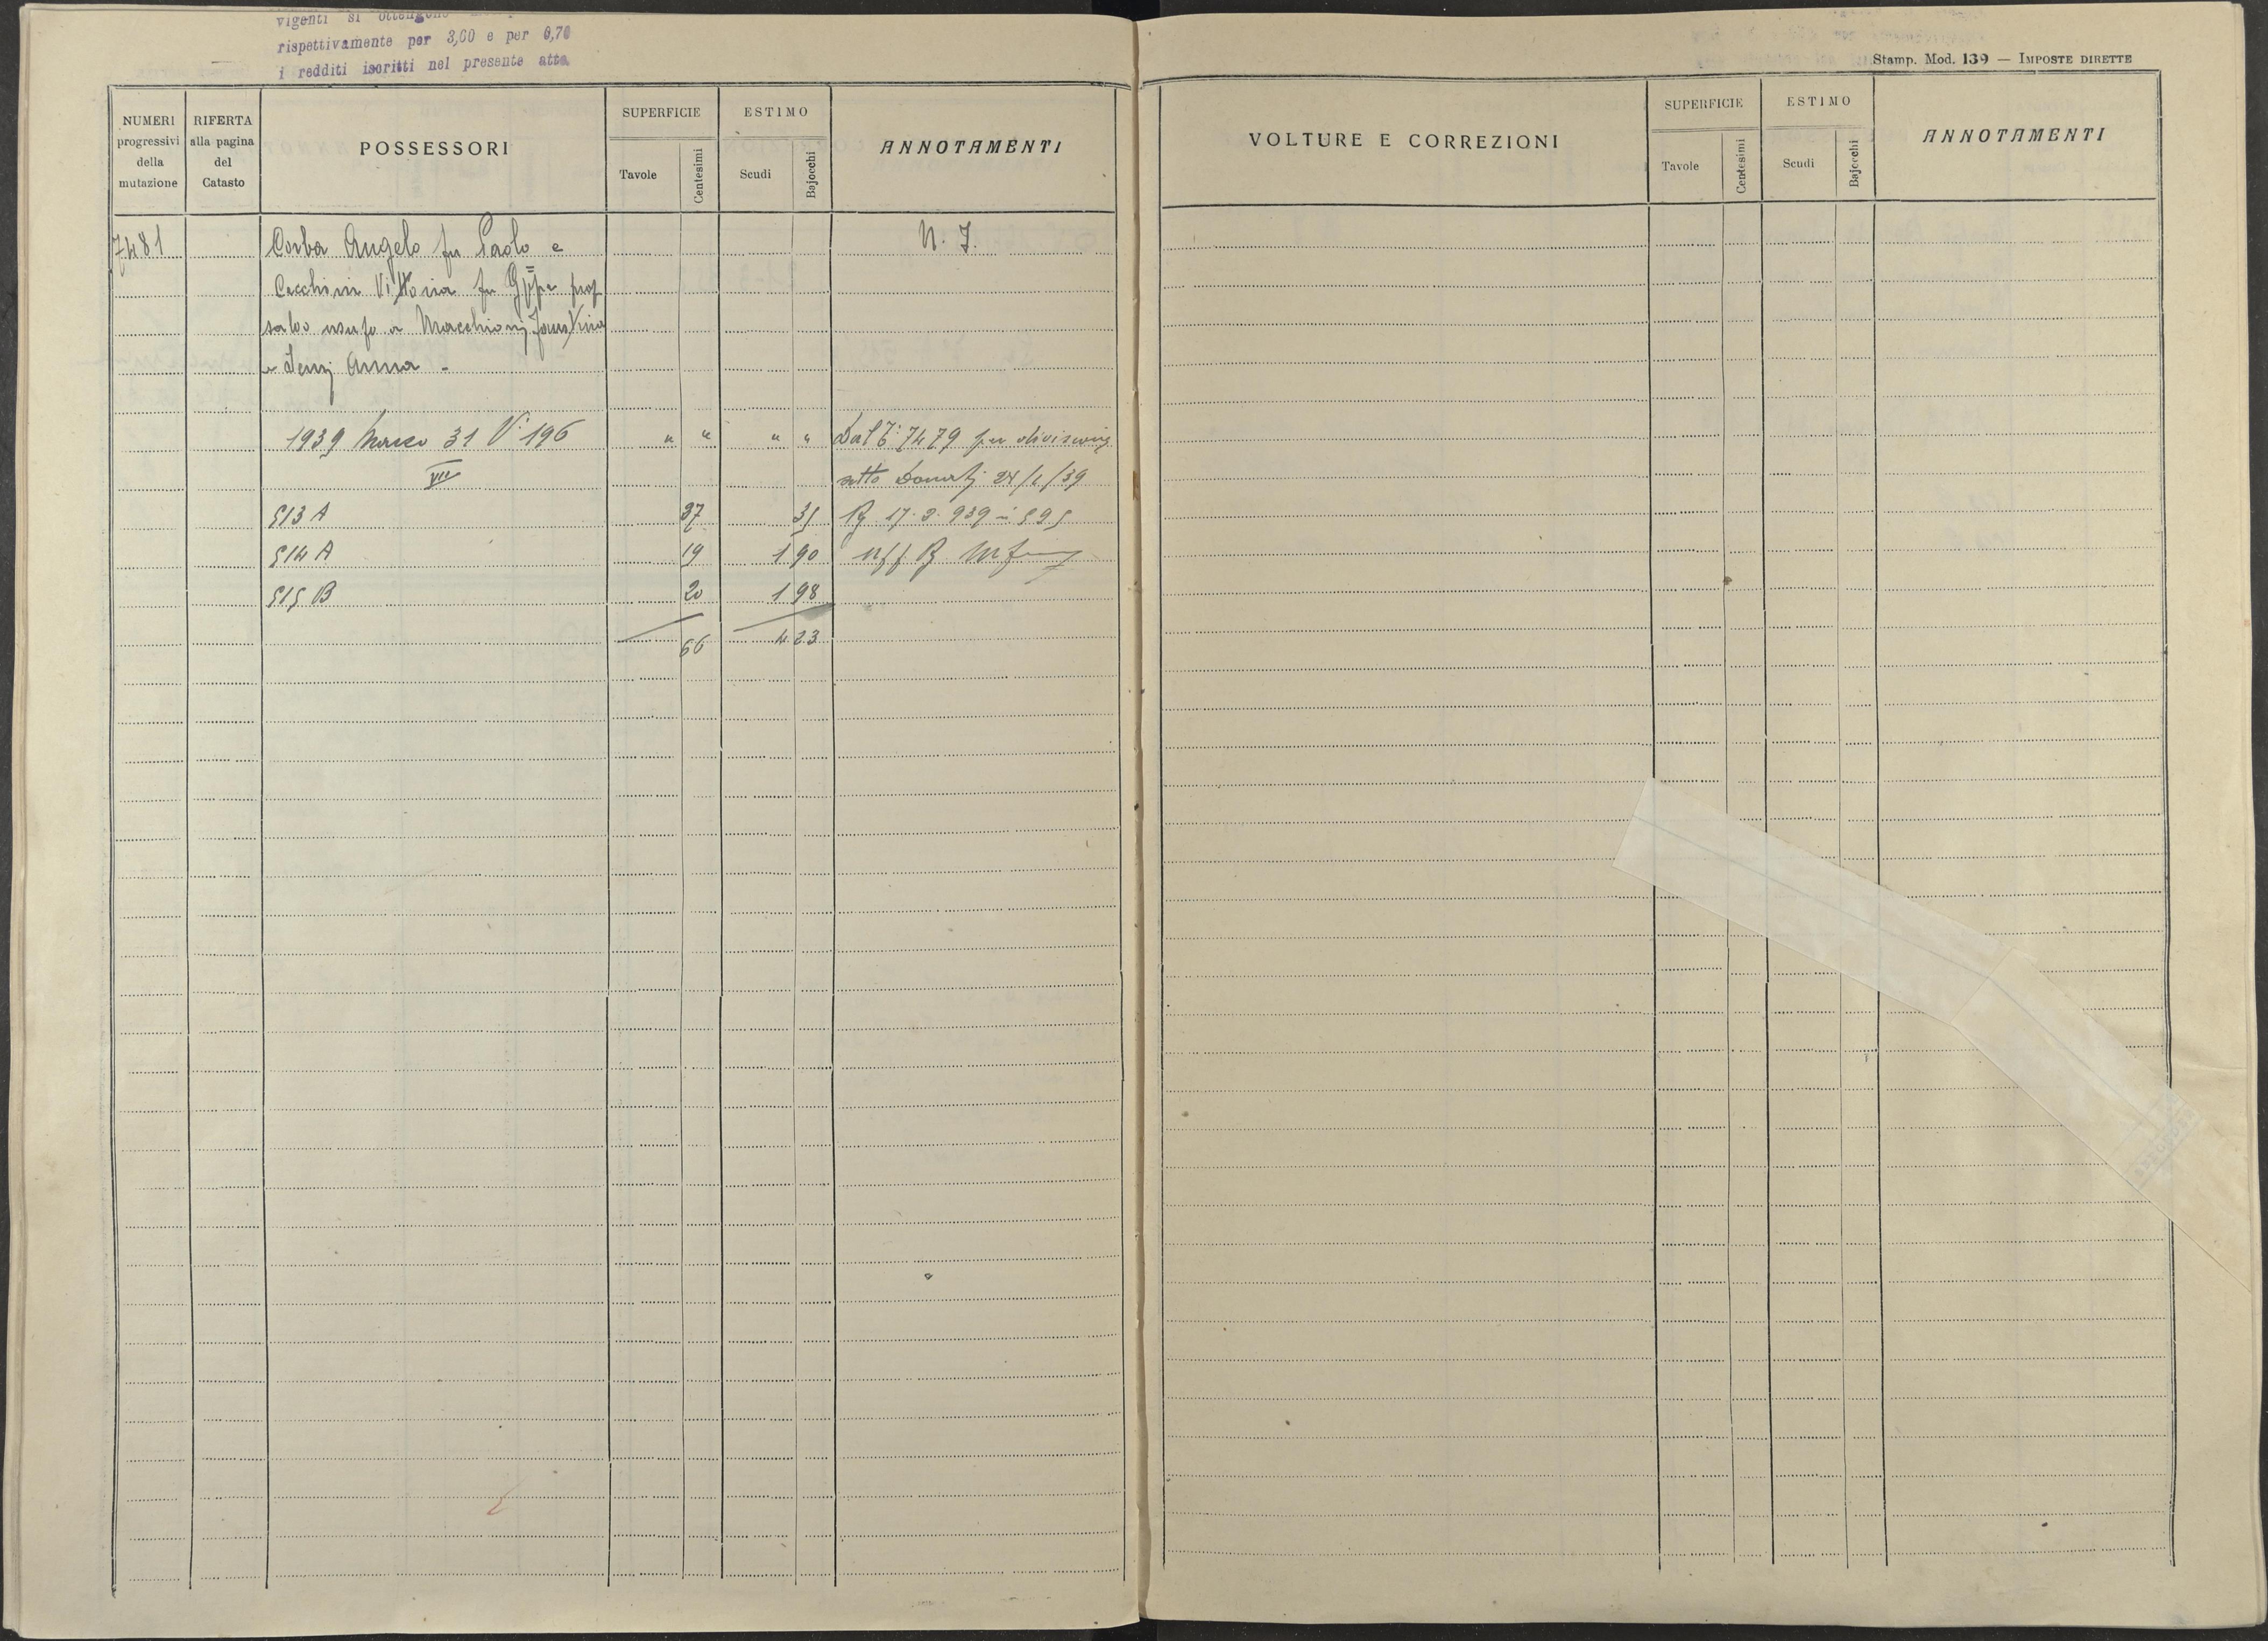 vigenti si ottengono
rispettivamente per 3,00 e per 0,70
i redditi iscritti nel presente atto
Stamp. Mod. 139 — IMPOSTE DIRETTE
NUMERI progressivi della mutazione
RIFERTA alla pagina del Catasto
POSSESSORI
SUPERFICIE
Tavole
Centesimi
ESTIMO
Scudi
Bajocchi
ANNOTAMENTI
VOLTURE E CORREZIONI
SUPERFICIE
Tavole
Centesimi
ESTIMO
Scudi
Bajocchi
ANNOTAMENTI
7481 Corba Angelo fu Paolo e N. I.
Cecchini Vittoria fu Gppe prop
salvo usuf. a Macchioni Faustina
e Anna -
1939 Marzo 31 V. 196 " " " " Dal 7479 per divisione
VII atto Donati 24/1/39
513 A 27 35 17. 2. 939 595
514 A 19 1 90
515 B 20 1 98
66 4 23